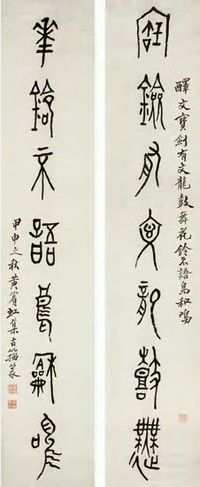 釋文寶劍有文龍鼓舞花鈴不語鳥和鳴
寶劍有文龍鼓舞
華鈴不語鳥龢鳴
甲申之秋黃賓虹集古籀篆